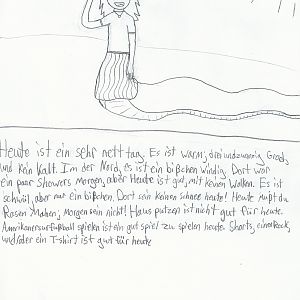 Heute ist ein sehr nett tag. Es ist warm, dreiundzwanzig Grad,
und kein kalt. Im der Nord, es ist ein bißchen windig. Dort war
ein paar Showers Morgen, aber Heute ist gut, mit keinen Wolken. Es ist
schwül, aber nur ein bißchen. Dort sein keinen schnee heute! Heute mußt du
Rasen Mahen, morgen sein nicht! Haus putzen ist nicht gut für heute.
Amerikanersurfußball spielen ist ein gut spiel zu spielen heute. Shorts, eine Rock,
und/oder ein T-shirt ist gut für heute